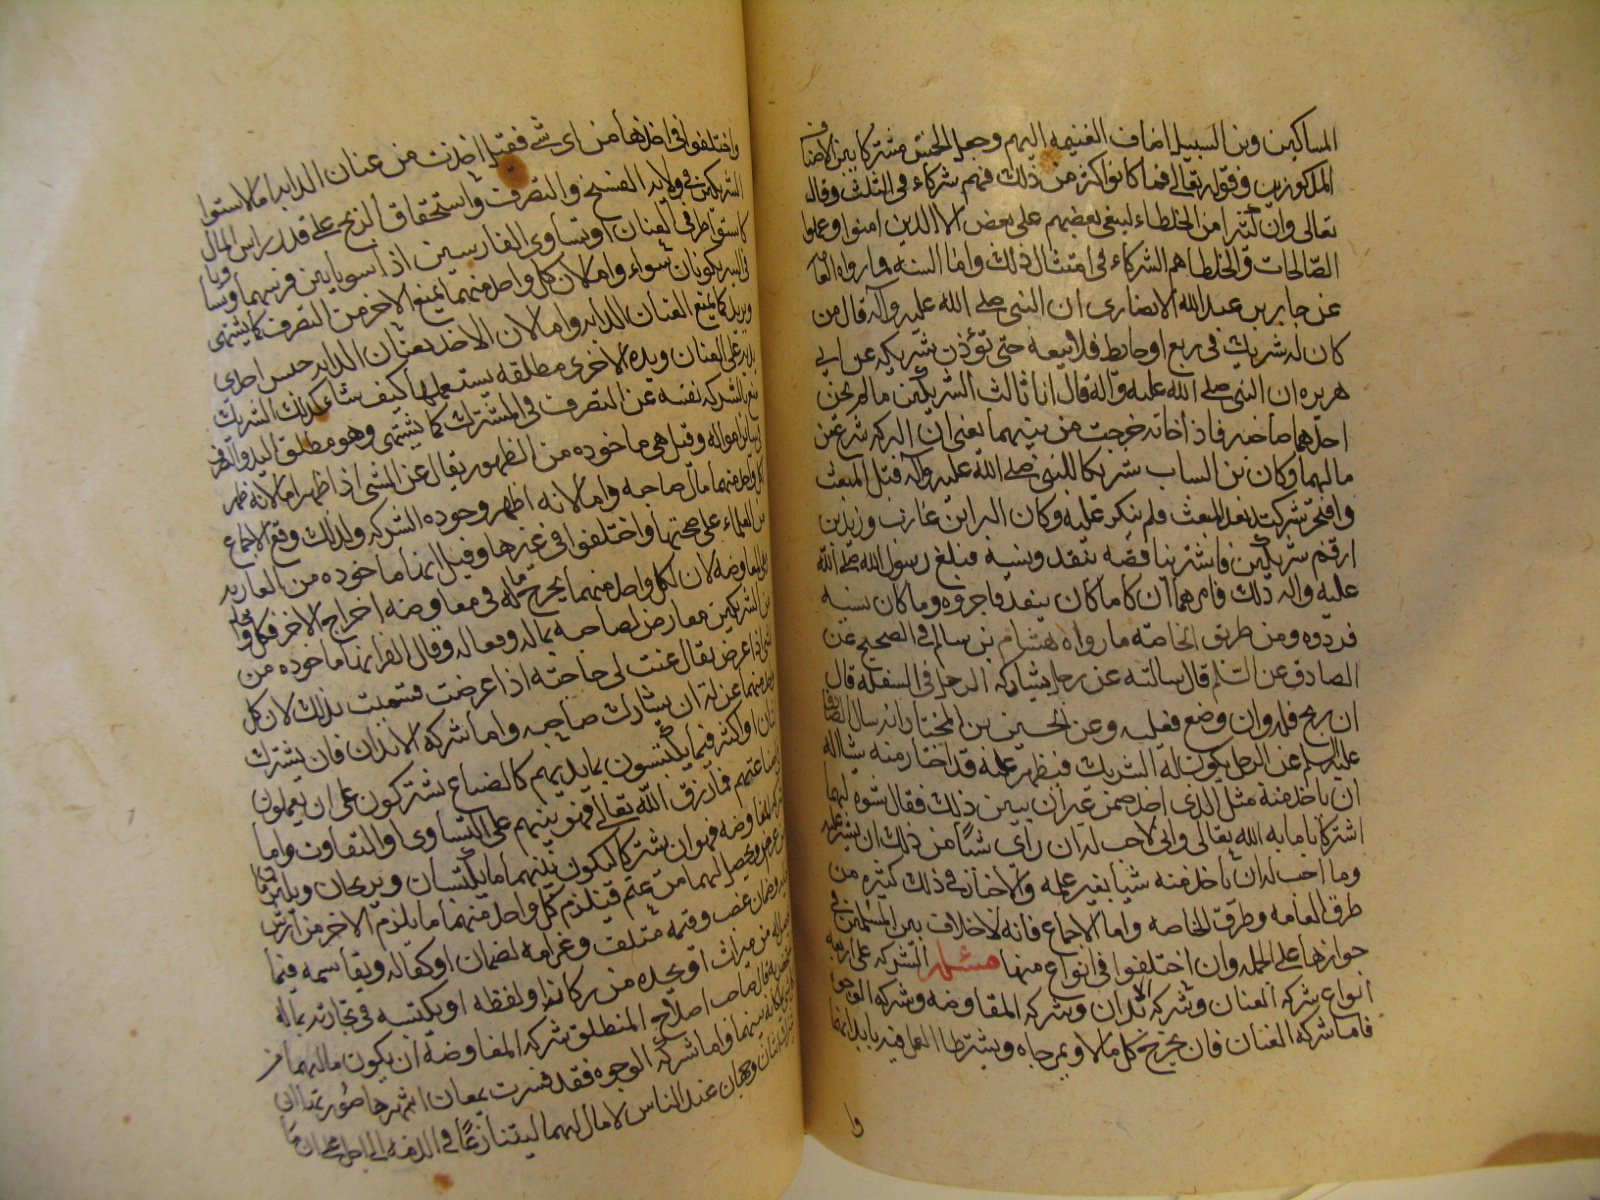 المساكين وبن السبيل اضاف الغنيمه اليهم وجعل الخمس مشتركا بين الاصناف
المذكورين وقوله تعالى فما كانوا اكثر من ذلك فهم شركاء في الثلث وقال
تعالى وان كثيرا من الخلطاء ليبغي بعضهم على بعض الا الذين امنوا وعملوا
الصالحات والخلطا هم الشركاء في امتثال ذلك واما السنة فما رواه العامة
عن جابر بن عبد الله الانصاري ان النبي صلى الله عليه واله قال من
كان له شريك في ربع او حايط فلا يبيعه حتى يؤذن شريكه عن ابي
هريره ان النبي صلى الله عليه واله قال انا ثالث الشريكين ما لم يخن
احدهما صاحبه فاذا خانه خرجت من بينهما يعنى ان البركه تنزع عن
مالهما وكان بن السايب شريكا للنبي صلى الله عليه واله قبل المبعث
وافتخر بشركته بعد المبعث فلم ينكر عليه وكان البرا ابن عازب وزيد بن
ارقم شريكين فاشتريا فضه بنقد ونسيه فبلغ رسول الله صلى الله
عليه واله ذلك فامرهما ان كل ما كان بنقد فاجروه وما كان بنسيه
فردوه ومن طريق الخاصه ما رواه هشام بن سالم في الصحيح عن
الصادق عن السلم قال سالته عن رجل يشاركه الرجل في السلعه قال
ان ربح فله وان وضع فعليه وعن الحسين بن المختار انه سال الصادق
عليه السلم عن الرجل يكون له الشريك فيظهر عليه قد اختار منه شيا اله
ان ياخذ منه مثل الذي اخذ من غير ان يبين ذلك فقال شوه لهما
اشتركا بامانه الله تعالى واني لاحب له ان راى شيا من ذلك ان يستر عليه
وما احب له ان ياخذ منه شيا بغير علمه والاخبار في ذلك كثيره من
طرق العامه وطرق الخاصه واما الاجماع فانه لا خلاف بين المسلمين في
جوازها على الجمله وان اختلفوا في انواع منها مسئله الشركه على اربعه
انواع شركه العنان وشركه الابدان وشركه المفاوضه وشركه الوجوه
فاما شركه العنان فان يخرج كل مالا ويمزجاه ويشترطا العمل فيه بابدانهما
وا
واختلفوا في اخذها من اي شي فقيل اخذت من عنان الدابه اما لاستوا
الشريكين في ولايه الفسخ والتصرف واستحقاق الربح على قدر راس المال
كاستوا طرفي العنان او تساوى الفارسين اذا سويا بين فرسيهما وتساويا
في السير يكونان سواء واما لان كل واحد منهما يمنع الاخر من التصرف كما يشتهى
ويريد كما يمنع العنان الدابه واما لان الاخذ بعنان الدابه حبس احدى
يديه على العنان ويده الاخرى مطلقه يستعملها كيف شاء كذلك الشريك
منع بالشركه نفسه عن التصرف في المشترك كما يشتهى وهو مطلق اليد والتصرف
في ساير امواله وقيل هي ماخوذه من الظهور يقال عن الشى اذا ظهر اما لانه ظهر
لكل واحد منهما مال صاحبه واما لانه اظهر وجوه الشركه ولذلك وقع الاجماع
من العلماء على صحتها واختلفوا في غيرها وقيل انما ماخوذه من
المعاوضه لان لكل واحد منهما يخرج ماله في معاوضه اخراج الاخر فكل واحد
من الشريكين معارض لصاحبه بماله وفعاله وقال الفرا انما ماخوذه من
الشى اذا عرض يقال عنت لي حاجته اذا عرضت فسميت بذلك لان كل
واحد منهما عن له ان يشارك صاحبه واما شركه الابدان فان يشترك
اثنان او اكثر فيما يكتسبون بايديهم كالصناع يشتركون على ان يعملون
صناعتهم فما رزق الله تعالى فهو بينهم على التساوى او التفاوت واما
شركه المفاوضه فهو ان يشتركا ليكون بينهما ما يكتسبان ويربحان ويلتزما
من غرم ويحصل لهما من غنم فيلزم كل واحد منهما ما يلزم الاخر من ارش
جنايه وضمان غصب وقيمه متلف وغرامه لضمان او كفاله ويقاسمه فيما
يحصل له من ميراث او يجده من ركاز او لقطه او يكتسبه في تجارته بماله
المختص به قال صاحب اصلاح المنطلق شركه المفاوضه ان يكون مالهما من
بينهما واما شركه الوجوه فقد فسرت بمعان اشهرها صورتها ان
يشترك اثنان وجيهان عند الناس لا مال لهما ليبتاعا في الذمه الى اجل على ان ما